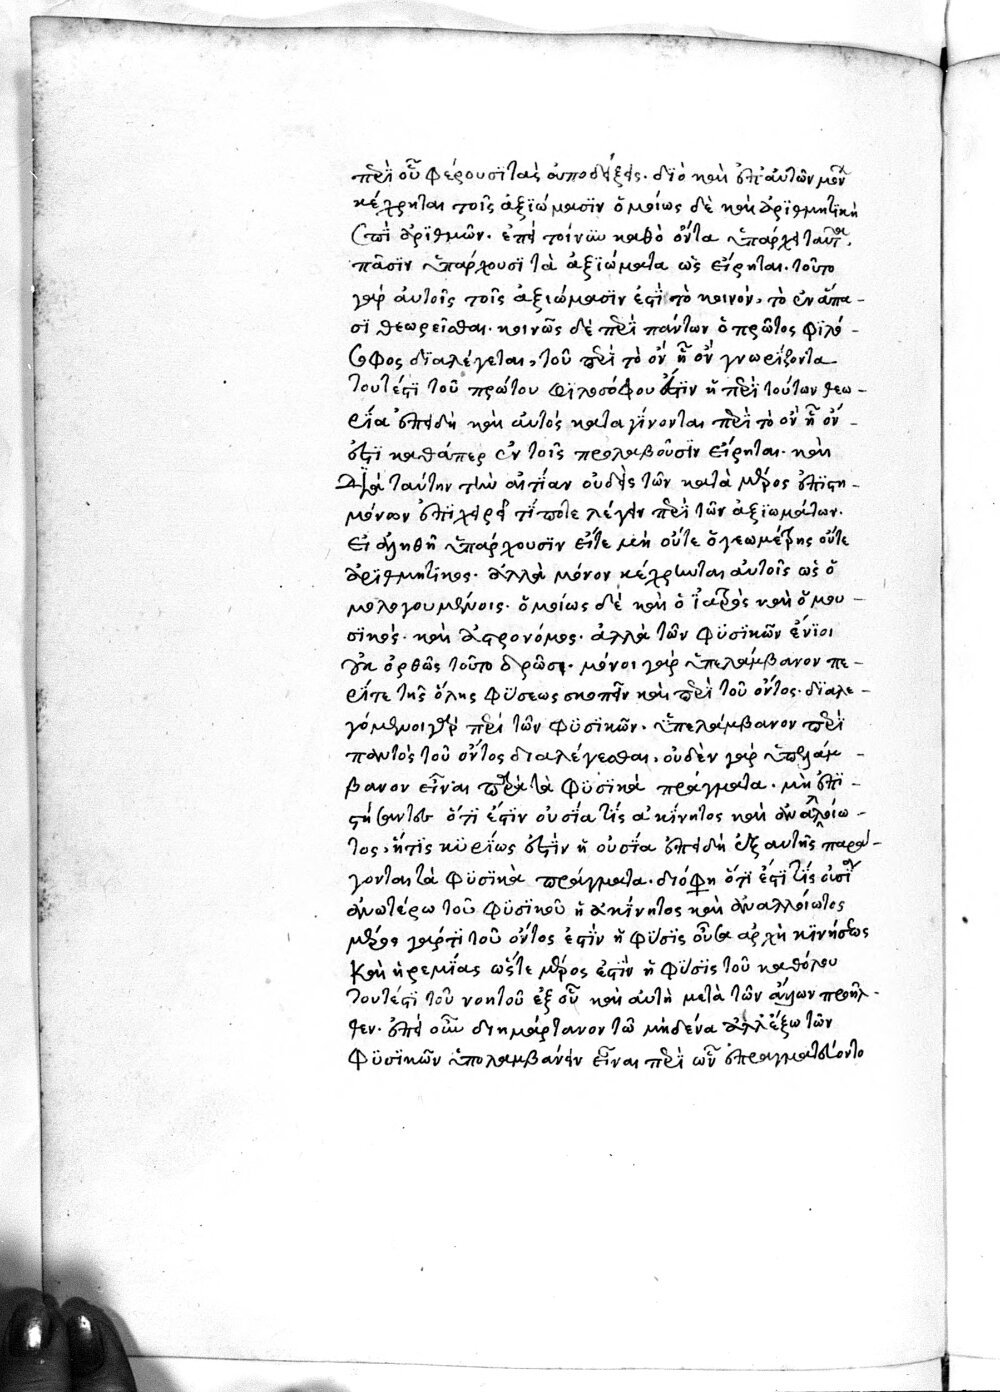 περὶ οὗ φέρουσι τὰς ἀποδείξεις. διὸ καὶ ἐπ' αὐτῶν μόνον
κέχρηται τοῖς ἀξιώμασιν ὁμοίως δὲ καὶ ἀριθμητικὴ
ἐπὶ ἀριθμῶν. ἐπεὶ τοίνυν καθὸ ὄντα ὑπάρχει ταῦτα,
πᾶσιν ὑπάρχουσι τὰ ἀξιώματα ὡς εἴρηται. τοῦτο
γὰρ αὐτοῖς τοῖς ἀξιώμασιν ἐστὶ τὸ κοινὸν, τὸ ἐν ἅπα-
σι θεωρεῖσθαι. κοινῶς δὲ περὶ πάντων ὁ πρῶτος φιλό-
σοφος διαλέγεται, τοῦ περὶ τὸ ὂν ᾗ ὂν γνωρίζοντα
τουτέστι τοῦ πρώτου φιλοσόφου ἐστὶν ἡ περὶ τούτων θεω-
ρία ἐπειδὴ καὶ αὐτὸς καταγίνονται περὶ τὸ ὂν ᾗ ὄν
ἐστι καθάπερ ἐν τοῖς προλαβοῦσιν εἴρηται. καὶ
Διὰ ταύτην τὴν αἰτίαν οὐδεὶς τῶν κατὰ μέρος ἐπιστη-
μόνων ἐπιχειρεῖ τί ποτε λέγειν περὶ τῶν ἀξιωμάτων.
εἰ ἀληθῆ ὑπάρχουσιν εἴτε μὴ οὔτε ὁ γεωμέτρης οὔτε
ἀριθμητικος. ἀλλὰ μόνον κέχρηνται αὐτοῖς ὡς ὁ
μολογουμένοις. ὁμοίως δὲ καὶ ὁ ἰατρὸς καὶ ὁ μου-
σικὸς. καὶ ἀστρονόμος. ἀλλὰ τῶν φυσικῶν ἔνιοι
οὐκ ὀρθῶς τοῦτο δρῶσι. μόνοι γὰρ ὑπελάμβανον πε-
ρί τε τῆς ὅλης φύσεως σκοπεῖν καὶ περὶ τοῦ ὄντος. διαλε-
γόμενοι γὰρ περὶ τῶν φυσικῶν. ὑπελάμβανον περὶ
παντὸς τοῦ ὄντος διαλέγεσθαι. οὐδὲν γὰρ ὑπελάμ-
βανον εἶναι παρὰ τὰ φυσικὰ πράγματα. μὴ ἐπι-
στήσαντες ὅτι ἐστὶν οὐσία τίς ἀκίνητος καὶ ἀναλλοίω-
τος, ἥτις κυρίως ἐστὶν ἡ οὐσία ἐπειδὴ ἐξ αὐτῆς παρά-
γονται τὰ φυσικὰ πράγματα. διό φη ὅτι ἐστί τίς οὐσία
ἀνωτέρω τοῦ φυσικοῦ ἡ ἀκίνητος καὶ ἀναλλοίωτος
μέρος γάρ τι τοῦ ὄντος ἐστὶν ἡ φύσις οὖσα ἀρχὴ κινήσεως
Καὶ ἠρεμίας ὥστε μέρος ἐστὶν ἡ φύσις τοῦ καθόλου
τουτέστι τοῦ νοητοῦ ἐξ οὗ καὶ αὐτὴ μετὰ τῶν ἄλλων προῆλ-
θεν. ἐπεὶ οὖν διημάρτανον τῶ μηδένα ἀλλ' ἔξω τῶν
φυσικῶν ὑπολαμβάνειν εἶναι περὶ ὧν ἐπραγματεύοντο